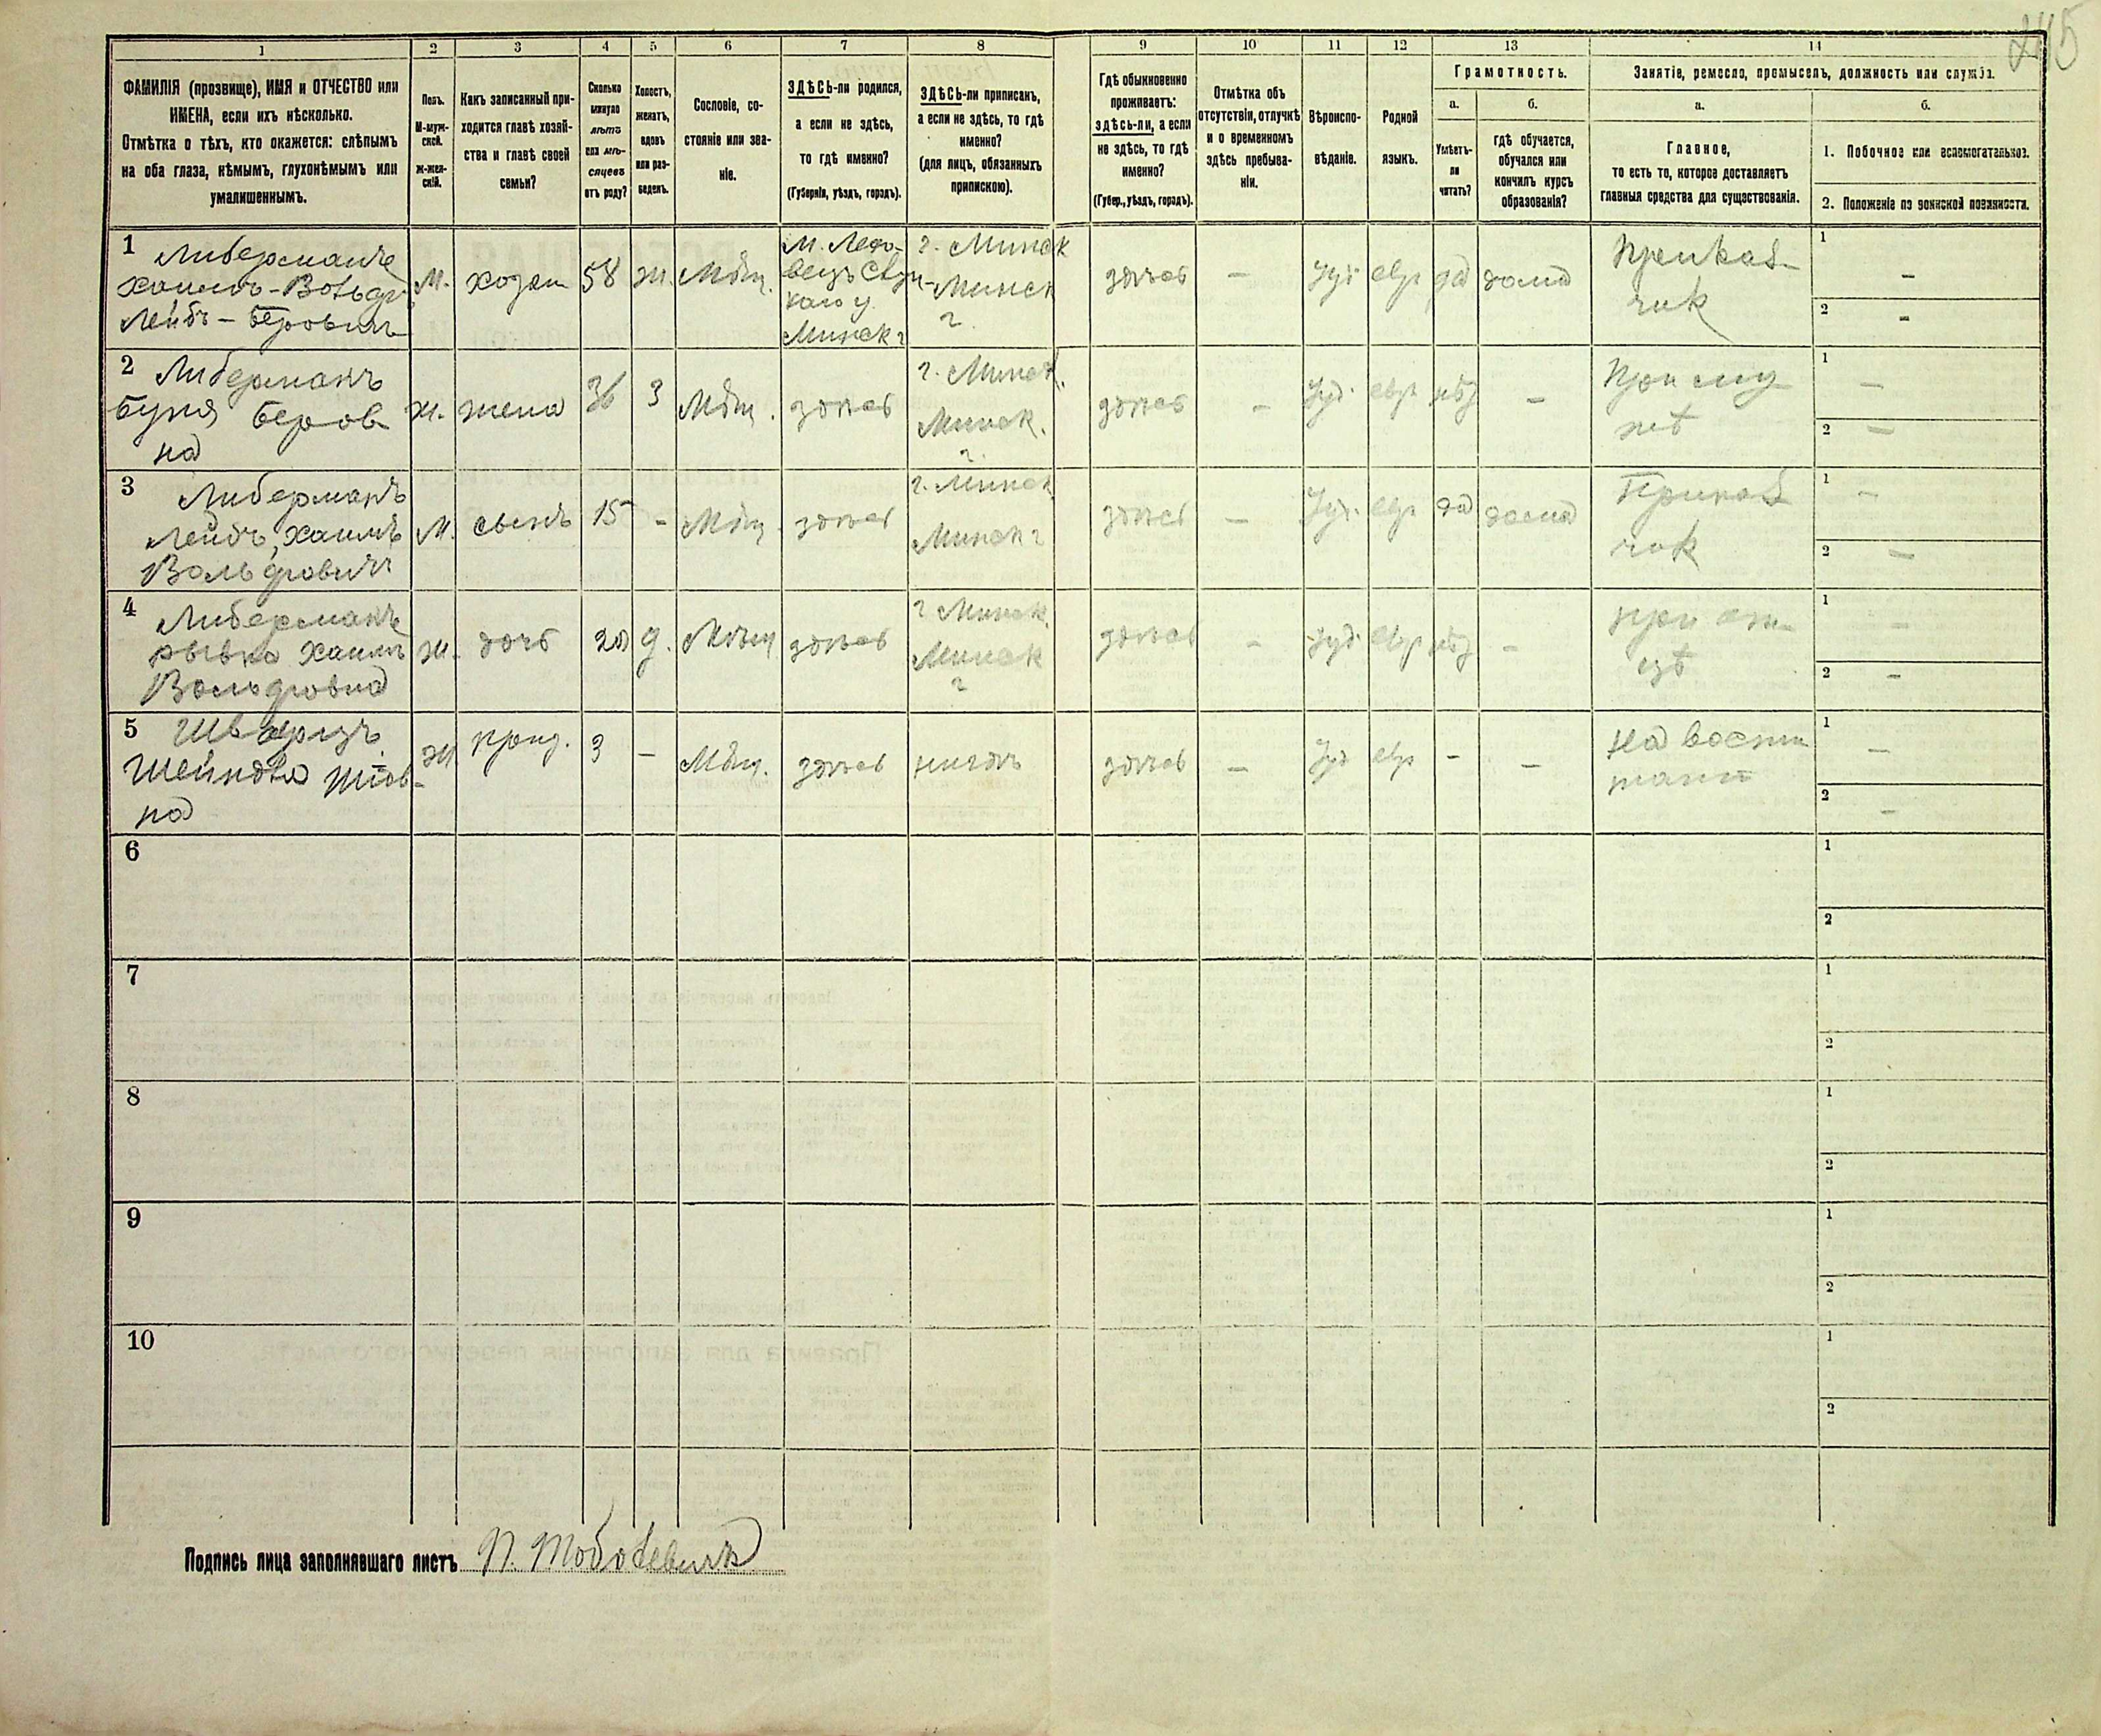 245
1 2 3 4 5 6 7 8 9 10 11 12 13 14
ФАМИЛІЯ (прозвище), ИМЯ и ОТЧЕСТВО или
ИМЕНА, если ихъ нѣсколько.
Отмѣтка о тѣхъ, кто окажется: слѣпымъ
на оба глаза, нѣмымъ, глухонѣмымъ или
умалишеннымъ.
Полъ.
М-муж-
ской.
Ж-жен-
скій.
Какъ записанный при-
ходится главѣ хозяй-
ства и главѣ своей
семьи?
Сколько
минуло
лѣтъ
или мѣ-
сяцевъ
отъ роду?
Холостъ,
женатъ,
вдовъ
или раз-
веденъ.
Сословіе, со-
стояніе или зва-
ніе.
ЗДѢСЬ-ли родился,
а если не здѣсь,
то гдѣ именно?
(Губернія, уѣздъ, городъ).
ЗДѢСЬ-ли приписанъ,
а если не здѣсь, то гдѣ
именно?
(для лицъ, обязанныхъ
припискою).
Гдѣ обыкновенно
проживаетъ:
здѣсь-ли, а если
не здѣсь, то гдѣ
именно?
(Губер., уѣздъ, городъ).
Отмѣтка объ
отсутствіи, отлучкѣ
и о временномъ
здѣсь пребыва-
ніи.
Вѣроиспо-
вѣданіе.
Родной
языкъ.
Грамотность.
а.
Умѣетъ-
ли
читать?
б.
гдѣ обучается,
обучался или
кончилъ курсъ
образованія?
Занятіе, ремесло, промыселъ, должность или служба.
а.
Главное,
то есть то, которое доставляетъ
главныя средства для существованія.
б.
1. Побочное или вспомогательное.
2. Положеніе по воинской повинности.
1 Либерманъ
Хаимъ-Вольфъ
Лейбъ-Беровичъ
М.
хозяи
58
ж.
Мѣщ.
Минск г
г. Минск
Минск
г.
здѣсь
—
Іуд
евр
да
дома
Приказ-
чик
1 -
2 -
2 Либерманъ
Буня Беров
на
Ж.
жена
36
З
Мѣщ.
здѣсь
г. Минск.
Минск.
г.
здѣсь
—
Іуд.
евр
—
При му
жѣ
1 —
2 —
3 Либерманъ
Лейбъ, Хаимъ
Вольфовичъ
М.
сынъ
15
-
Мѣщ.
здѣсь
г. Минск
Минск г
здѣсь
—
Іуд.
евр
да
дома
Приказ
чик
1 —
2 —
4 Либерманъ
Рывка Хаимъ
Вольфовна
Ж.
дочь
20
д.
Мѣщ
здѣсь
г Минск
Минск
г
здѣсь
-
Іуд.
евр
-
при от
цѣ
1 —
2 -
5 Шварцъ
Шейндля
на
Ж
3
—
Мѣщ.
здѣсь
здѣсь
—
Іуд
евр
-
—
На воспи
тани
1 —
2 -
6 1
2
7 1
2
8 1
2
9 1
2
10 1
2
Подпись лица заполнявшаго листъ